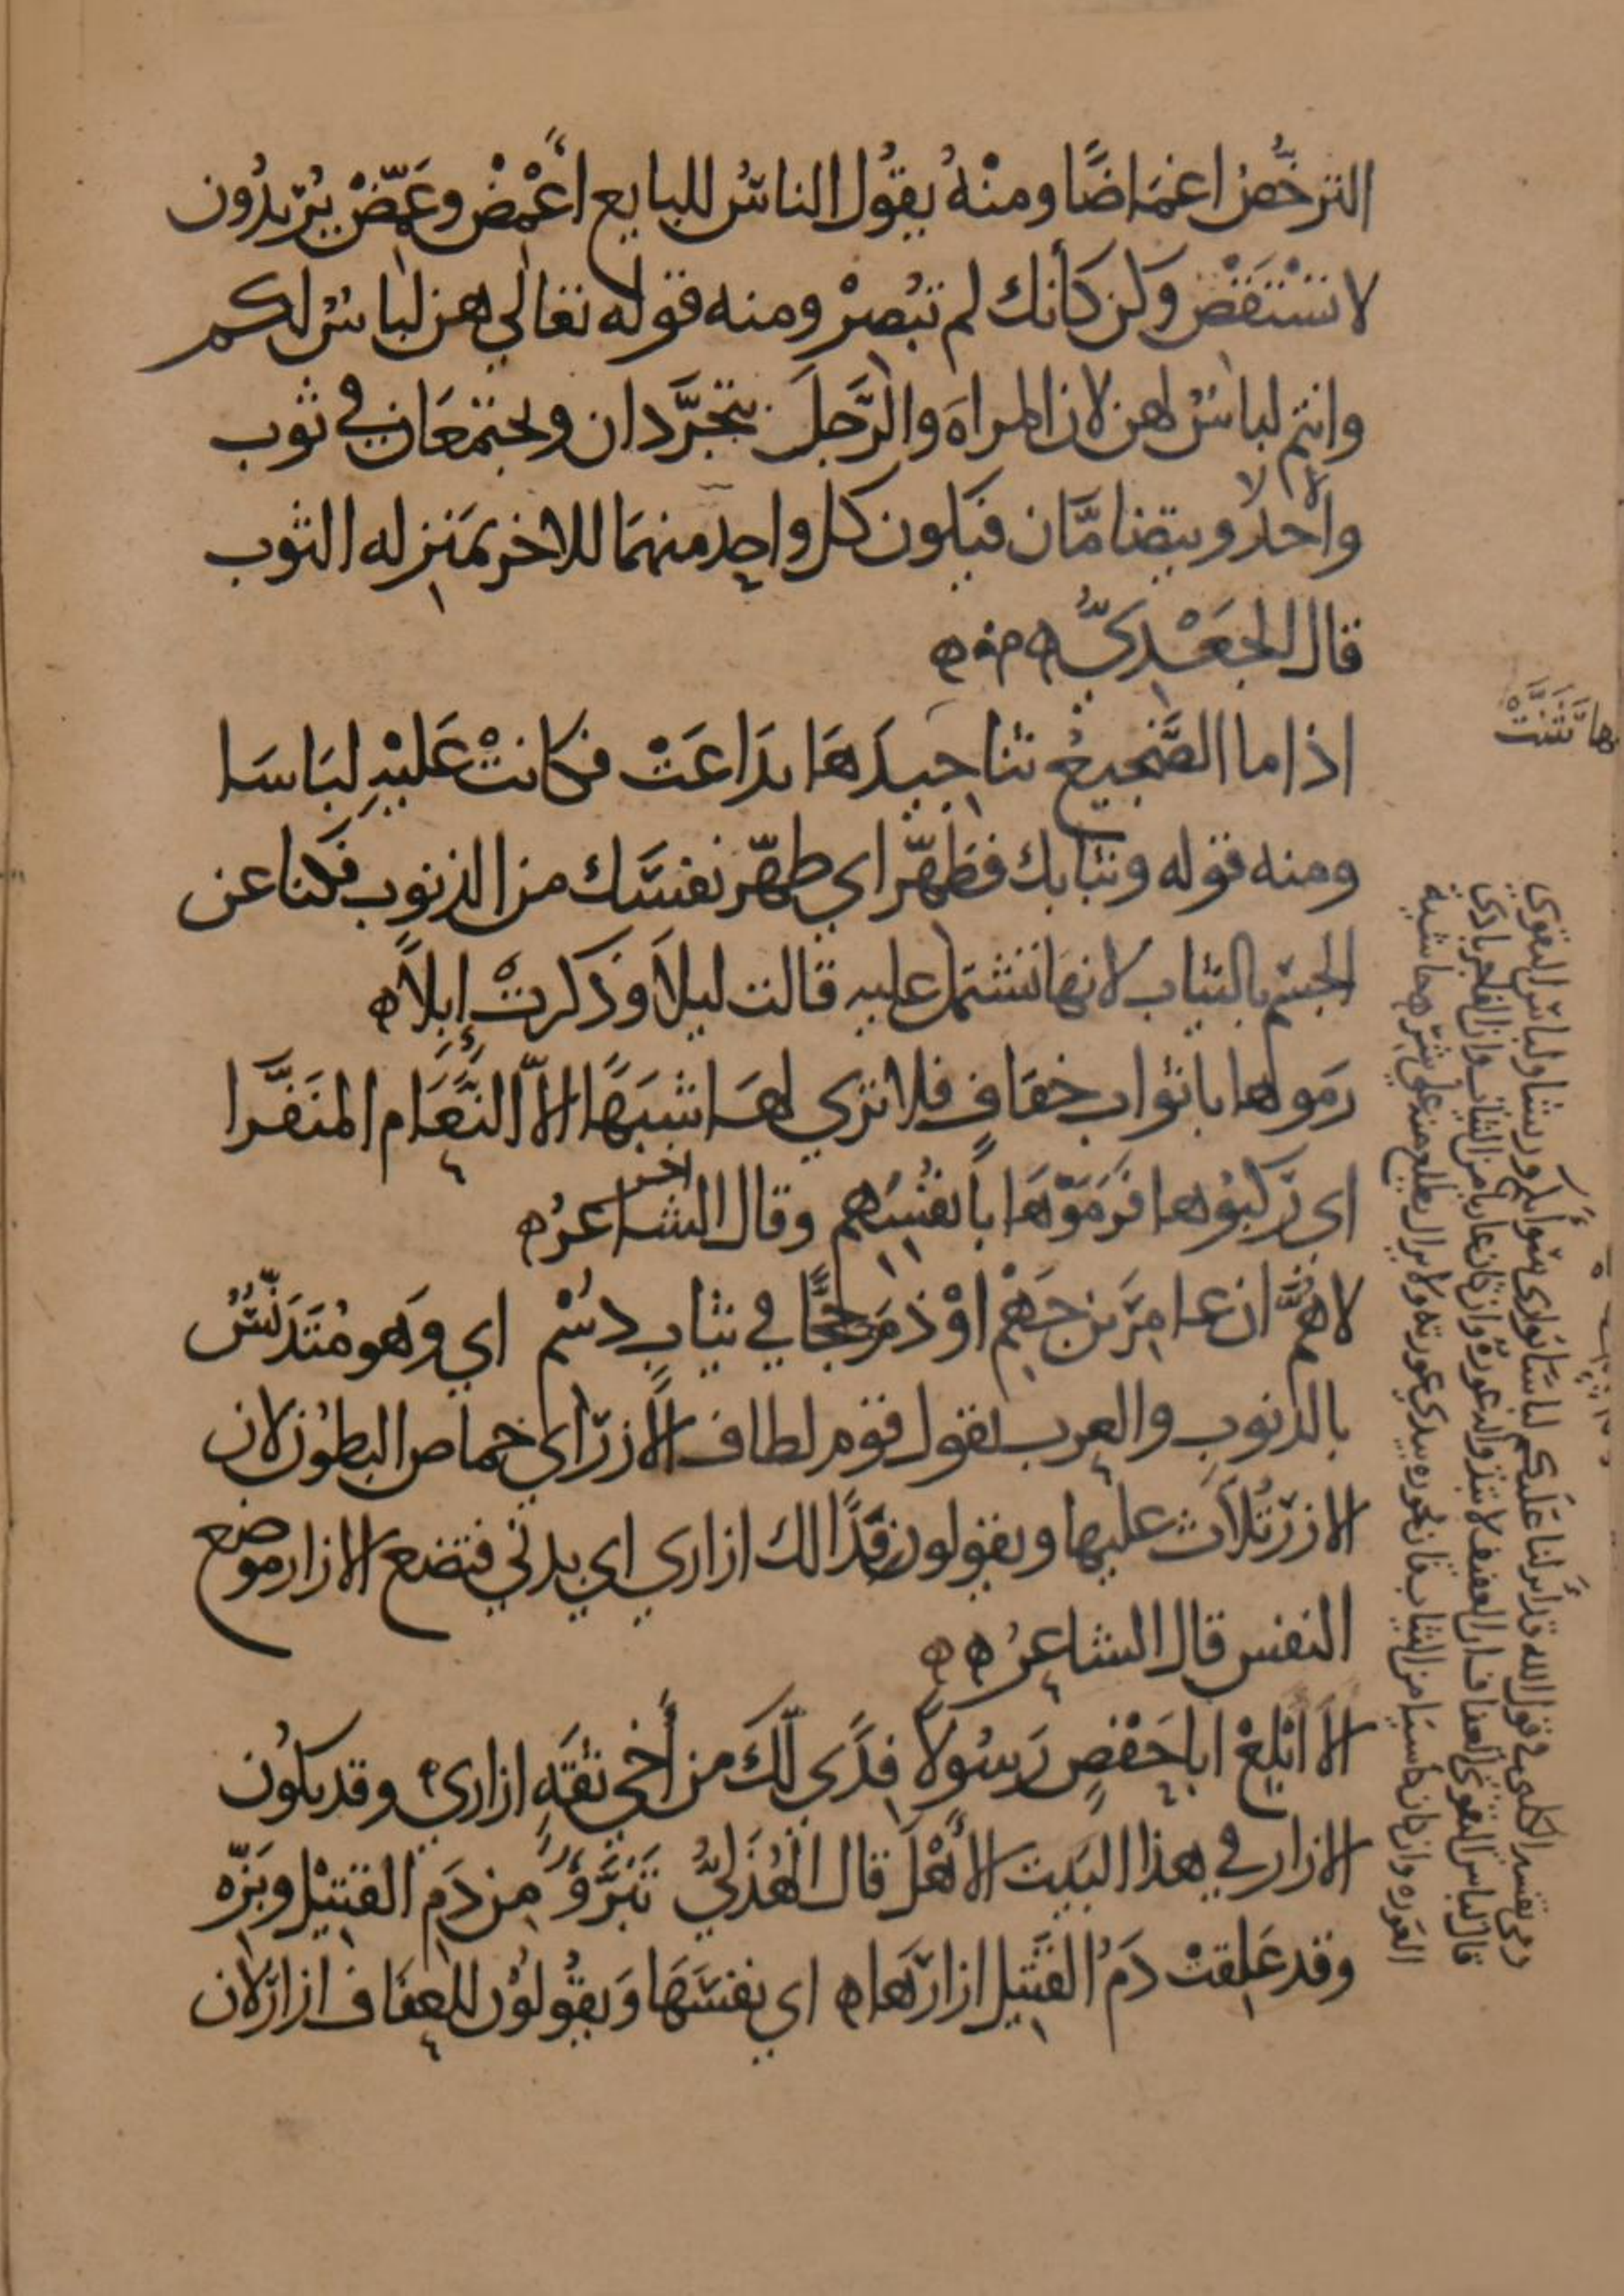 الترخُّصُ اغمَاضًا ومنْهُ يقُول الناسُ للبايع اغْمِضْ وغَمِّضْ يُريدُون
لا تسْتَقْصِ وكن كأنك لم تبُصِرْ ومنه قوله تعالي هن لباسٌ لكم
وانتم لباسٌ لهن لان المراهَ والرَّجلَ يتجرَّدان ويجتمعَان في ثوب
واحدٍ ويتضامَّان فيكون كل واحدٍ منهمَا للاخر بمَنزله الثوب
قال الجَعْدِيُّ
اذا ما الضَّجيعُ ثنا جيدَهَا تداعَتْ فكانتْ عَليْهِ لبَاسَا
ومنه قوله وثيابك فطهّر اي طهّر نفسَك من الذنوب فكنا عن
الجسْم بالثياب لانهَا تشتمل عليه قالت ليلَا وذكرتْ إبلاً
رمَوها باثواب خفافٍ فلا تري لهَا شبَهًا الاّ النَّعَام المنَفَّرا
اي ركبُوها فرَمَوْهَا بأنفُسِهم وقال الشاعرُ اخر
لاهُمَّ ان عامِرَ بن جَهْمِ اوْذمَ حَجًّا في ثيابٍ دسْم اي وَهو مُتَدَنِّسٌ
بالذنوبِ والعرب تقول قوم لطاف الأزر اي خماص البطُون لان
الازرَ تُلاَث عليها ويقولون فدًا لك ازاري اي بدني فتضع الازار موضع
النفس قال الشاعِرُ
الاَ ابْلِغْ ابا حَفْصٍ رَسُولاً فِدًي لَكَ من أخي ثقَةٍ ازاري وقد يكُون
الازار في هذا البَيت الأهْلَ قال الهُذَليُّ تَبَرَّؤُ مِن دَمِ القَتِيْل وبَزّه
وقد عَلِقتْ دَمَ القَتِيل ازارَهَا اي نفسَهَا وَيقُولوْن للعِفَاف ازارٌ لان
بها تَثَنَّتْ
وفي تفسير الكلبي في قول الله قد انزلنا عَلَيْكم لباسًا يُواري سَوآتكم وريشًا ولباس التقوي
قال لباس التقوي العفاف ان العفيف لا تبدو له عورة وان كان عاريا من الثياب وان الفاجر بادي
العَوره وان كان كاسيًا من الثياب